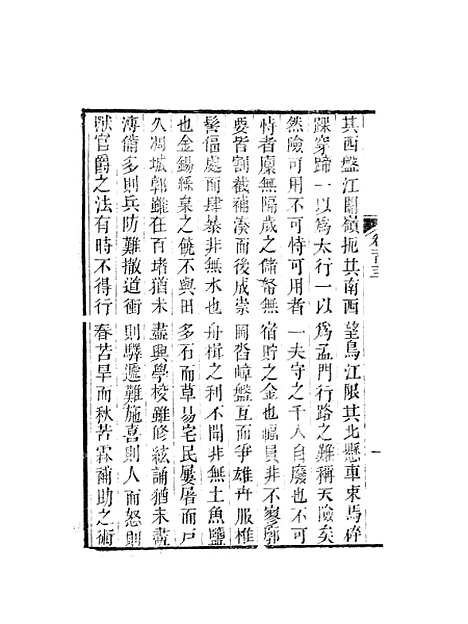 其西盤江關嶺扼其南西望烏江限其北懸車束馬碎
踝穿蹄一以爲太行一以爲孟門行路之難稱天險矣
然險可用不可恃可用者一夫守之千人自廢也不可
恃者廩無隔歲之儲帑無宿貯之金也幅員非不寥廓
要皆割截補湊而後成崇岡沓嶂盤互而爭雄卉服椎
髻偪處而肆暴非無水也舟楫之利不聞非無土魚鹽
也金錫絲枲之饒不與田多石而草易宅民屢屠而戶
久凋城郭雖在百堵猶未盡興學校雖修絃誦猶未盡
溥備多則兵防難撤道衝則驛遞難施喜則人而怒則
獸官爵之法有時不得行春苦旱而秋苦霖補助之術
卷二百三
一